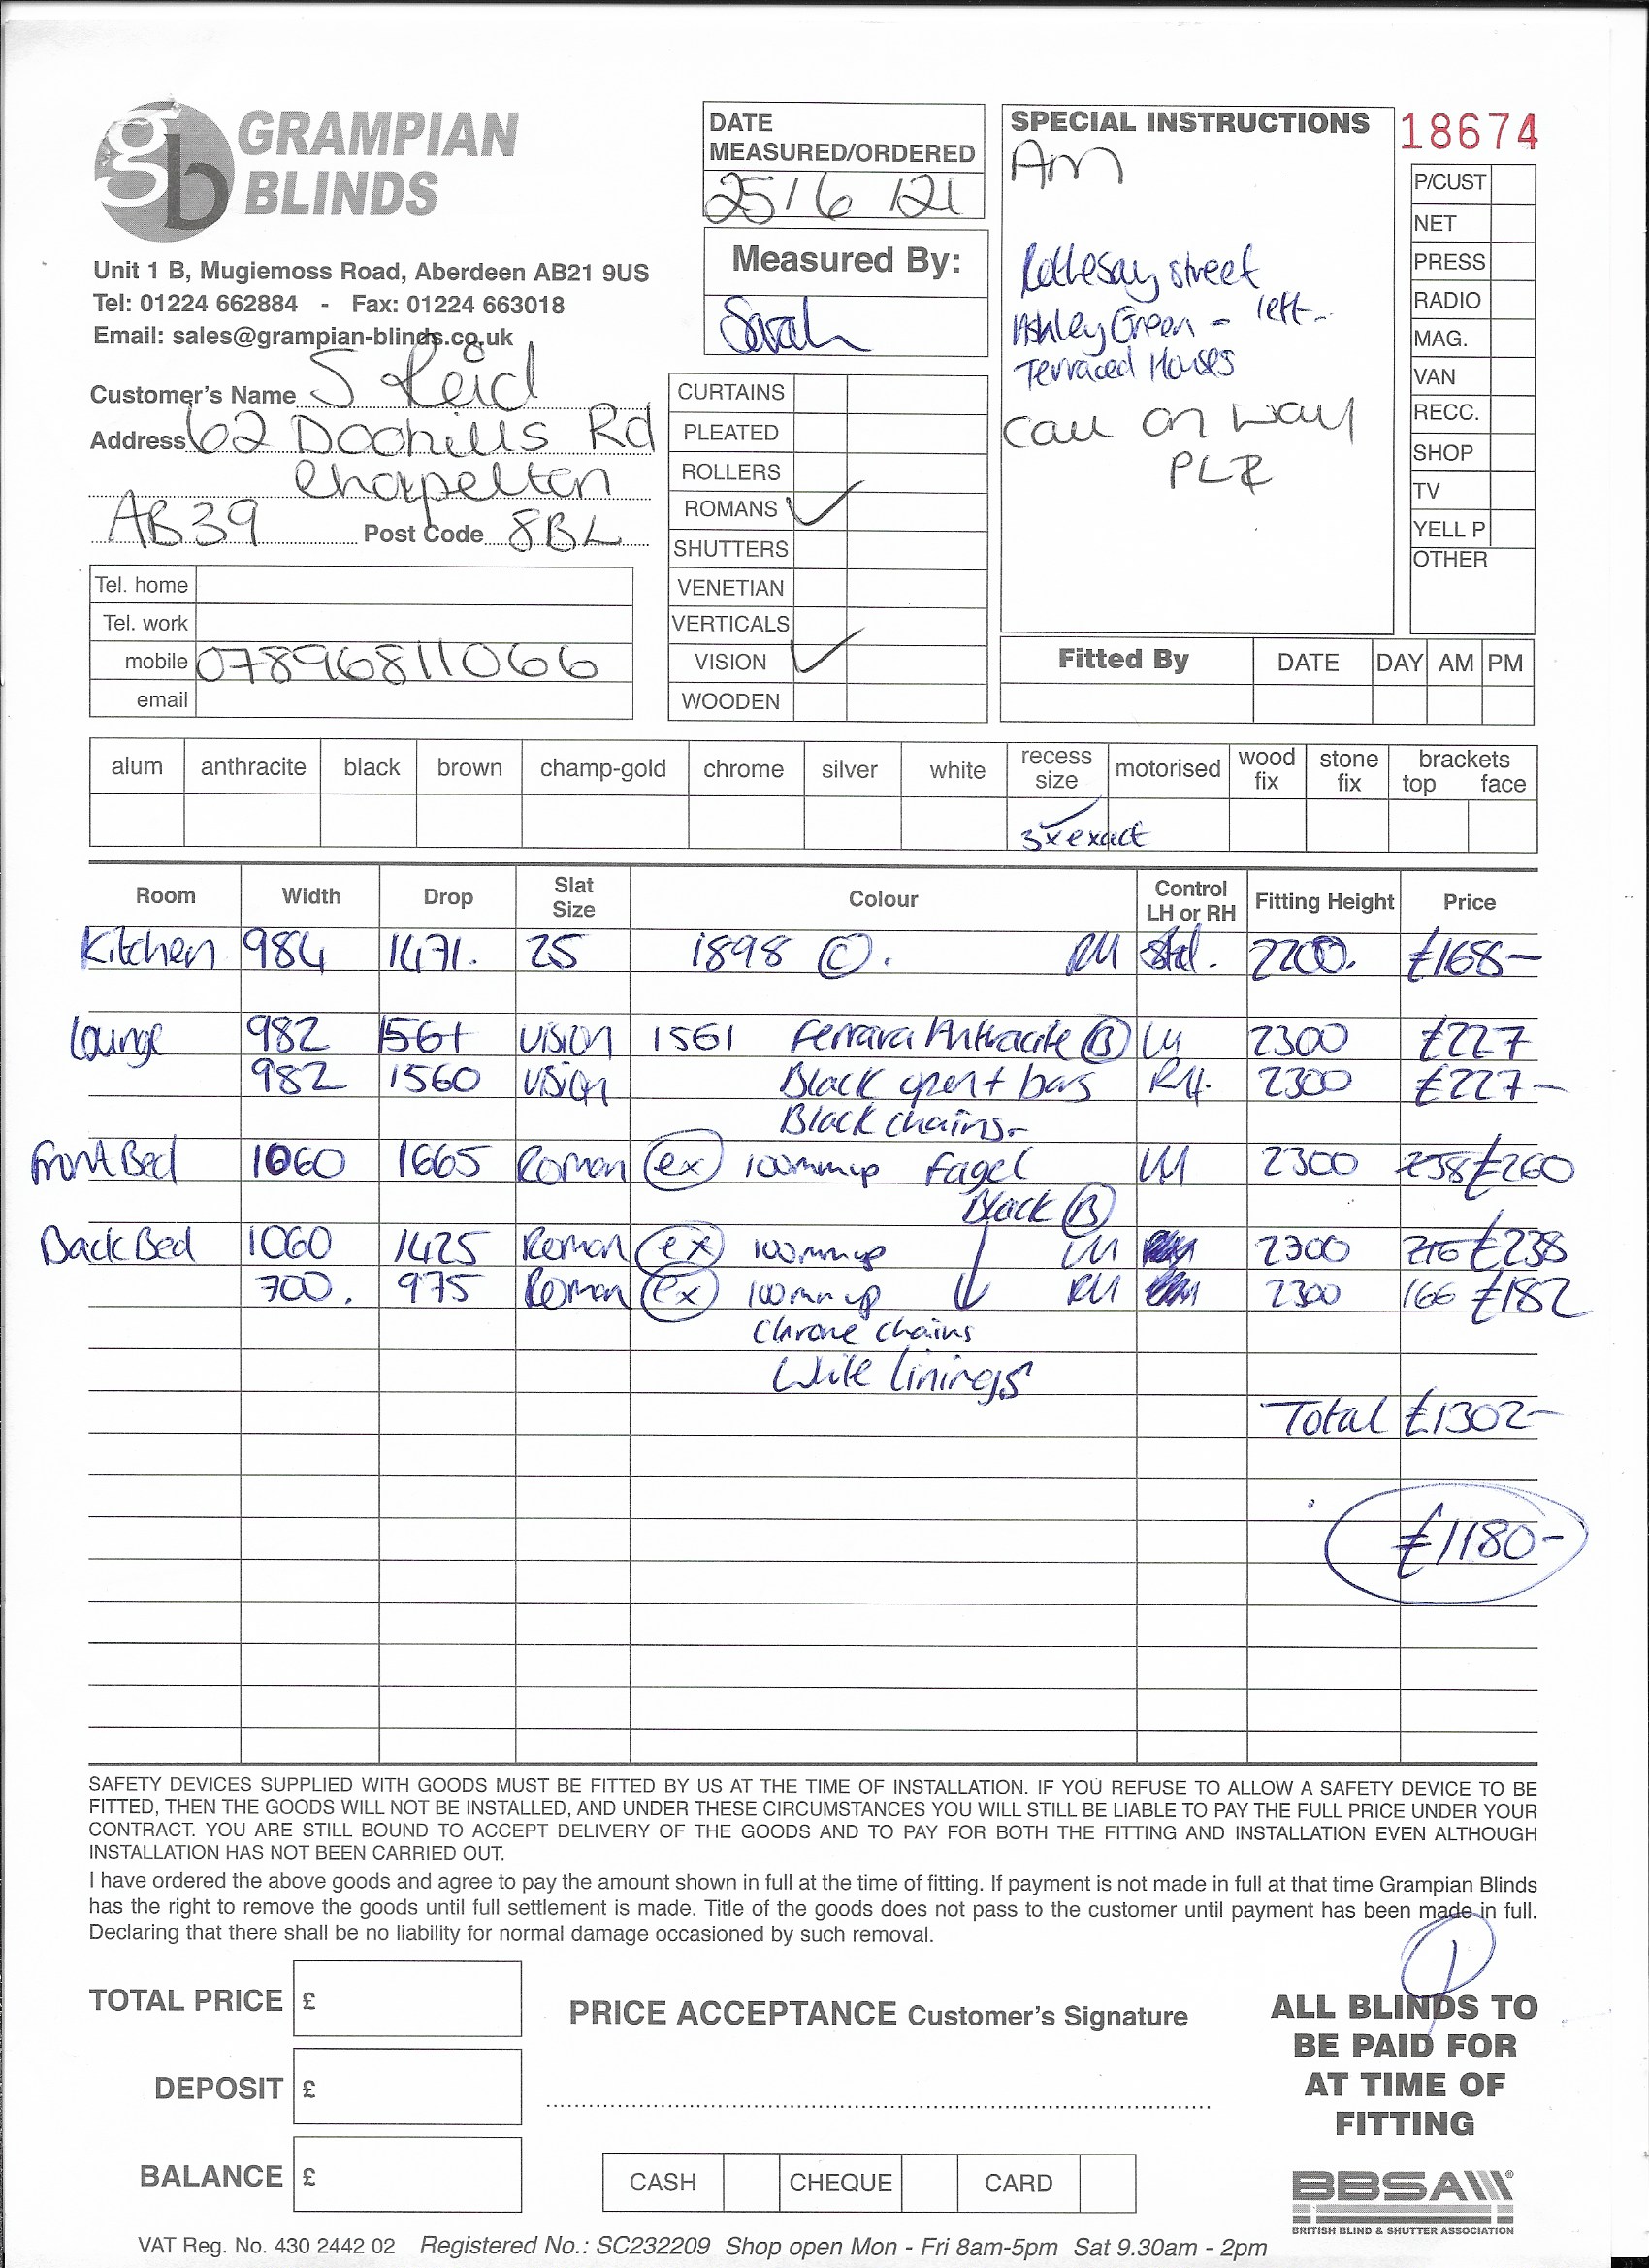 gb GRAMPIAN BLINDS
Unit 1 B, Mugiemoss Road, Aberdeen AB21 9US
Tel: 01224 662884 - Fax: 01224 663018
Email: sales@grampian-blinds.co.uk
Customer's Name S Reid
Address 62 Doohills Rd
Chapelton
AB39 Post Code 8BL
Tel. home
Tel. work
mobile 07896811066
email
DATE
MEASURED/ORDERED
25/6/21
Measured By:
Sarah
CURTAINS
PLEATED
ROLLERS
ROMANS ✓
SHUTTERS
VENETIAN
VERTICALS
VISION ✓
WOODEN
SPECIAL INSTRUCTIONS
Am
Rothesay street
Ashley Green - left-
Terraced Houses
Call on way
PLZ
18674
P/CUST
NET
PRESS
RADIO
MAG.
VAN
RECC.
SHOP
TV
YELL P
OTHER
Fitted By DATE DAY AM PM
alum anthracite black brown champ-gold chrome silver white recess size motorised wood fix stone fix brackets top face
3x exact
Room Width Drop Slat Size Colour Control LH or RH Fitting Height Price
Kitchen 984 1471. 25 1898 C. RH Std. 2200. £168-
Lounge 982 1561 vision 1561 Ferrara Antracite B LH 2300 £227
982 1560 vision Black open + bars RH. 2300 £227-
Black chains-
Front Bed 1060 1665 Roman ex 100mm up Fagel LH 2300 £260
Black B
Back Bed 1060 1425 Roman ex 100mm up LH 2300 216 £238
700. 975 Roman ex 100mm up RH 2300 166 £182
Chrome chains
White linings
Total £1302-
£1180-
SAFETY DEVICES SUPPLIED WITH GOODS MUST BE FITTED BY US AT THE TIME OF INSTALLATION. IF YOU REFUSE TO ALLOW A SAFETY DEVICE TO BE
FITTED, THEN THE GOODS WILL NOT BE INSTALLED, AND UNDER THESE CIRCUMSTANCES YOU WILL STILL BE LIABLE TO PAY THE FULL PRICE UNDER YOUR
CONTRACT. YOU ARE STILL BOUND TO ACCEPT DELIVERY OF THE GOODS AND TO PAY FOR BOTH THE FITTING AND INSTALLATION EVEN ALTHOUGH
INSTALLATION HAS NOT BEEN CARRIED OUT.
I have ordered the above goods and agree to pay the amount shown in full at the time of fitting. If payment is not made in full at that time Grampian Blinds
has the right to remove the goods until full settlement is made. Title of the goods does not pass to the customer until payment has been made in full.
Declaring that there shall be no liability for normal damage occasioned by such removal.
TOTAL PRICE £
DEPOSIT £
BALANCE £
PRICE ACCEPTANCE Customer's Signature
CASH CHEQUE CARD
ALL BLINDS TO
BE PAID FOR
AT TIME OF
FITTING
BBSA
BRITISH BLIND & SHUTTER ASSOCIATION
VAT Reg. No. 430 2442 02 Registered No.: SC232209 Shop open Mon - Fri 8am-5pm Sat 9.30am - 2pm